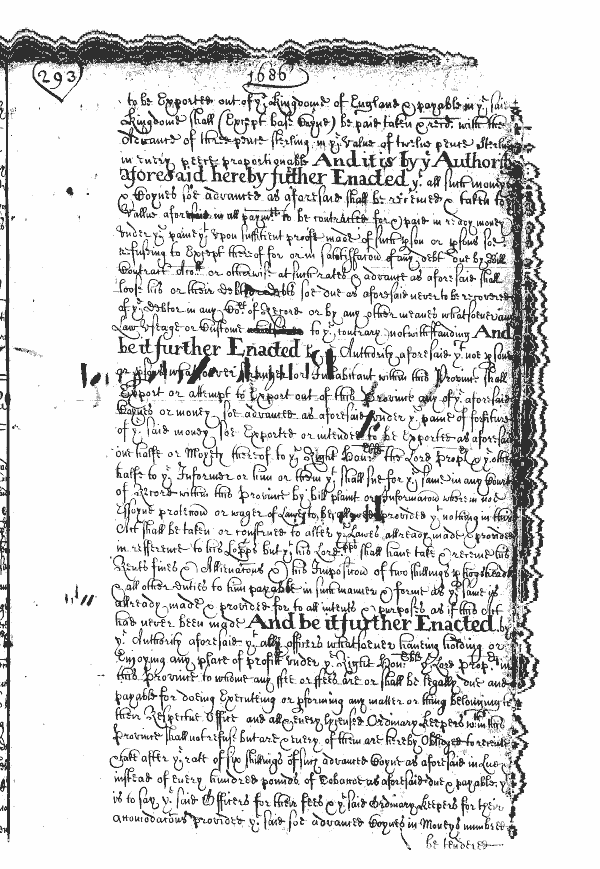 293
1686
to be Exported out of ye Kingdome of England & payable in ye said
Kingdome shall (Except base Coyne) be paid taken & recd. with the
Advance of three pence sterling in ye Value of twelve pence Sterling
in every peece proportionable And it is by ye Authority
aforesaid hereby further Enacted yt. all such moneys
& Coynes soe advanced as aforesaid shall be received & taken to ye
Value aforesaid in all paymts. to be contracted for & paid in ready money
under ye paine yt. upon sufficient proofe made of such pson or psons soe
refusing to Except thereof for or in sattisfaction of any debt due by Bill
Contract or otherwise at such rates & advance as aforesaid shall
loose his or their debt soe due as aforesaid never to be recovered
of ye Debtor in any Court of Record or by any other meanes whatsoever any
Law Useage or Custome to ye contrary notwithstanding And
be it further Enacted by ye Authority aforesaid yt. noe pson
or psons whatsoever or Inhabitant within this Province shall
Export or attempt to Export out of this Province any of ye aforesaid
Coynes or money soe advanced as aforesaid under ye paine of forfeiture
of ye said money soe Exported or intended to be Exported as aforesaid
one halfe or Moyety thereof to ye Right Honble the Lord Propry & ye other
halfe to ye Informer or him or them yt. shall sue for ye same in any Court
of Record within this Province by bill plaint or Informacon wherein noe
Essoyne proteccon or wager of Law to be allowed provided yt. nothing in this
Act shall be taken or construed to alter ye Lawes allready made & provided
in refference to his Lopps but yt. his Lordpp shall have take & receive his
Rents fines & Allienacons & his Imposicon of two shillings p hogshead
& all other duties to him payable in such manner & forme as ye same is
allready made & provided for to all intents & purposes as if this Act
had never been made And be it further Enacted by
ye Authority aforesaid yt. all officers whatsoever haveing holding or
Enjoying any place of proffitt under ye Right Honble ye Lord Propry in
this Province to whome any ffee or ffees are or shall be legally due and
payable for doeing Executing or pforming any matter or thing belonging to
their Respective Office and all & every Lycensed Ordinary keepers within this
Province shall not refuse but are & every of them are hereby Obliged to receive
& take after ye rate of six shillings of such advanced Coyne as aforesaid in Lieu &
instead of every hundred pounds of Tobacco as aforesaid due & payable yt.
is to say ye said Officers for their fees & ye said Ordinary keepers for their
accomodacons provided ye said soe advanced Coynes in Moneys numbred
be tendered